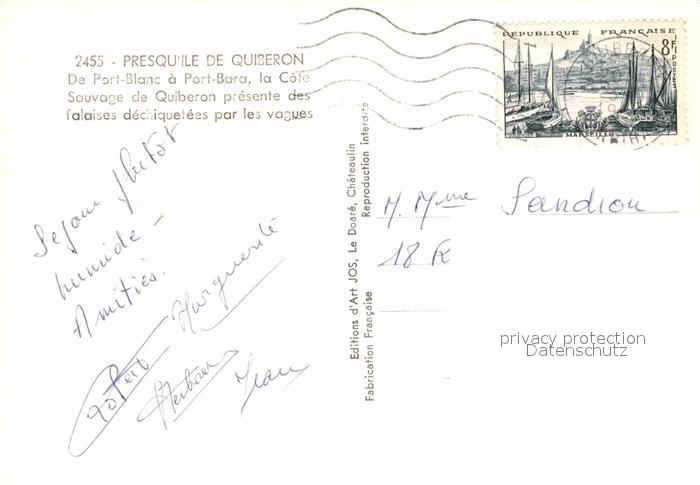 2455 - PRESQU'ILE DE QUIBERON
De Port-Blanc à Port-Bara, la Côte
Sauvage de Quiberon présente des
falaises déchiquetées par les vagues
Sejour plutôt
humide -
Amitiés.
Marguerite
Jean
Editions d'Art JOS, Le Doaré, Châteaulin
Reproduction interdite
Fabrication Française
REPUBLIQUE FRANÇAISE
8F
POSTES
MARSEILLE
M. Mme Landrou
18 R
privacy protection
Datenschutz